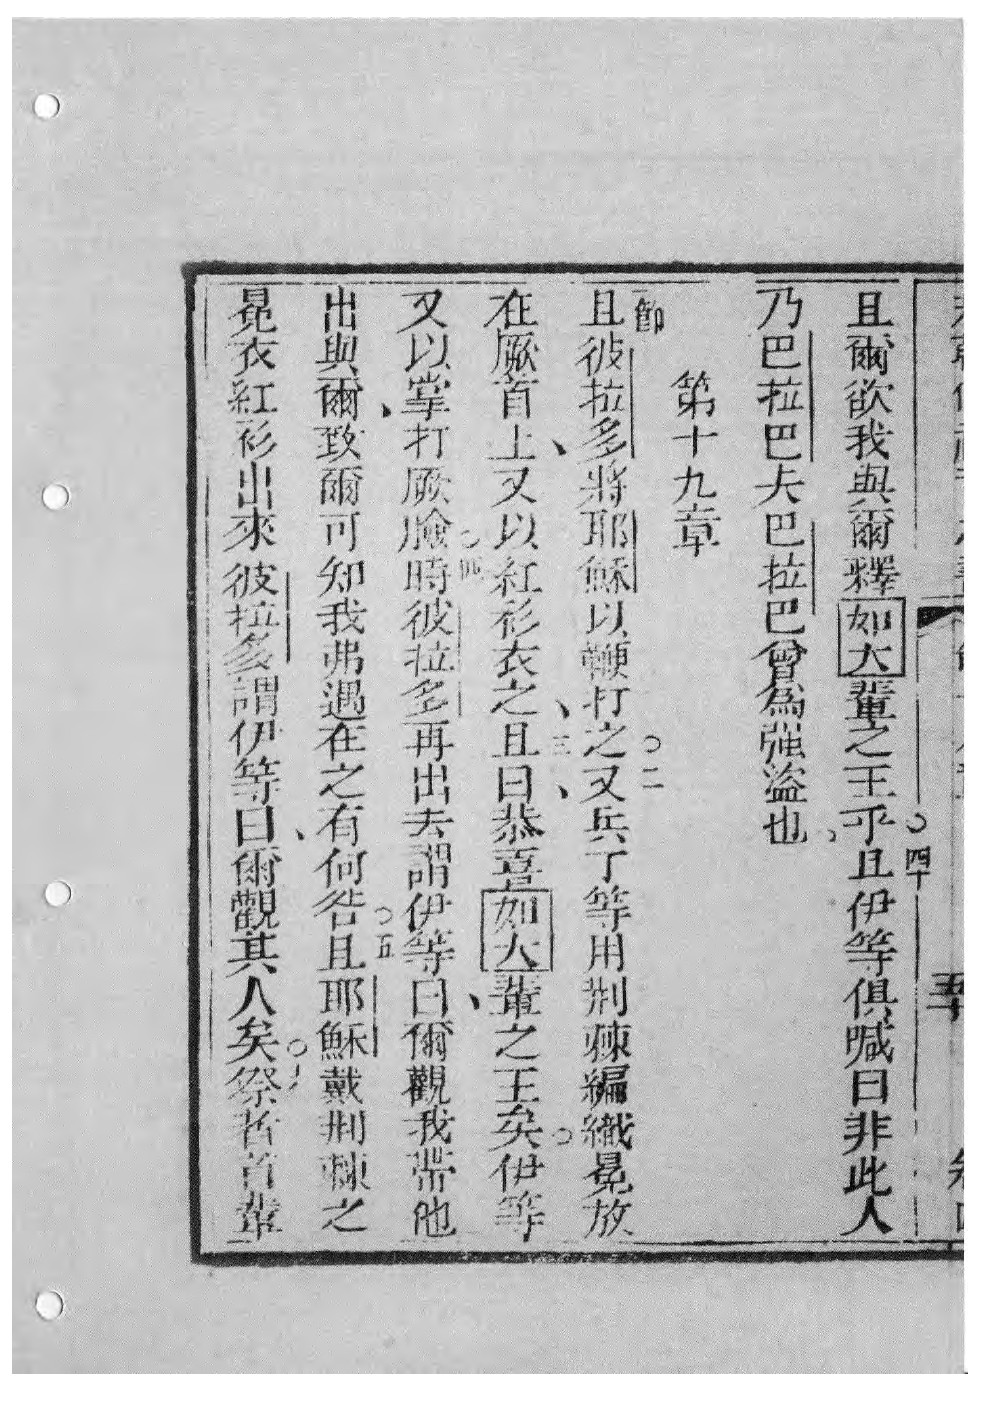 且爾欲我與爾釋如大輩之王乎四十且伊等俱喊曰非此人
乃巴拉巴夫巴拉巴曾為強盜也
第十九章
節且彼拉多將耶穌以鞭打之二又兵丁等用荆棘編織冕放
在厥首上又以紅衫衣之三且曰恭喜如大輩之王矣伊等
又以掌打厥臉四時彼拉多再出去謂伊等曰爾觀我帶他
出與爾致爾可知我弗遇在之有何咎五且耶穌戴荆棘之
冕衣紅衫出來彼拉多謂伊等曰爾觀其人矣六祭者首輩